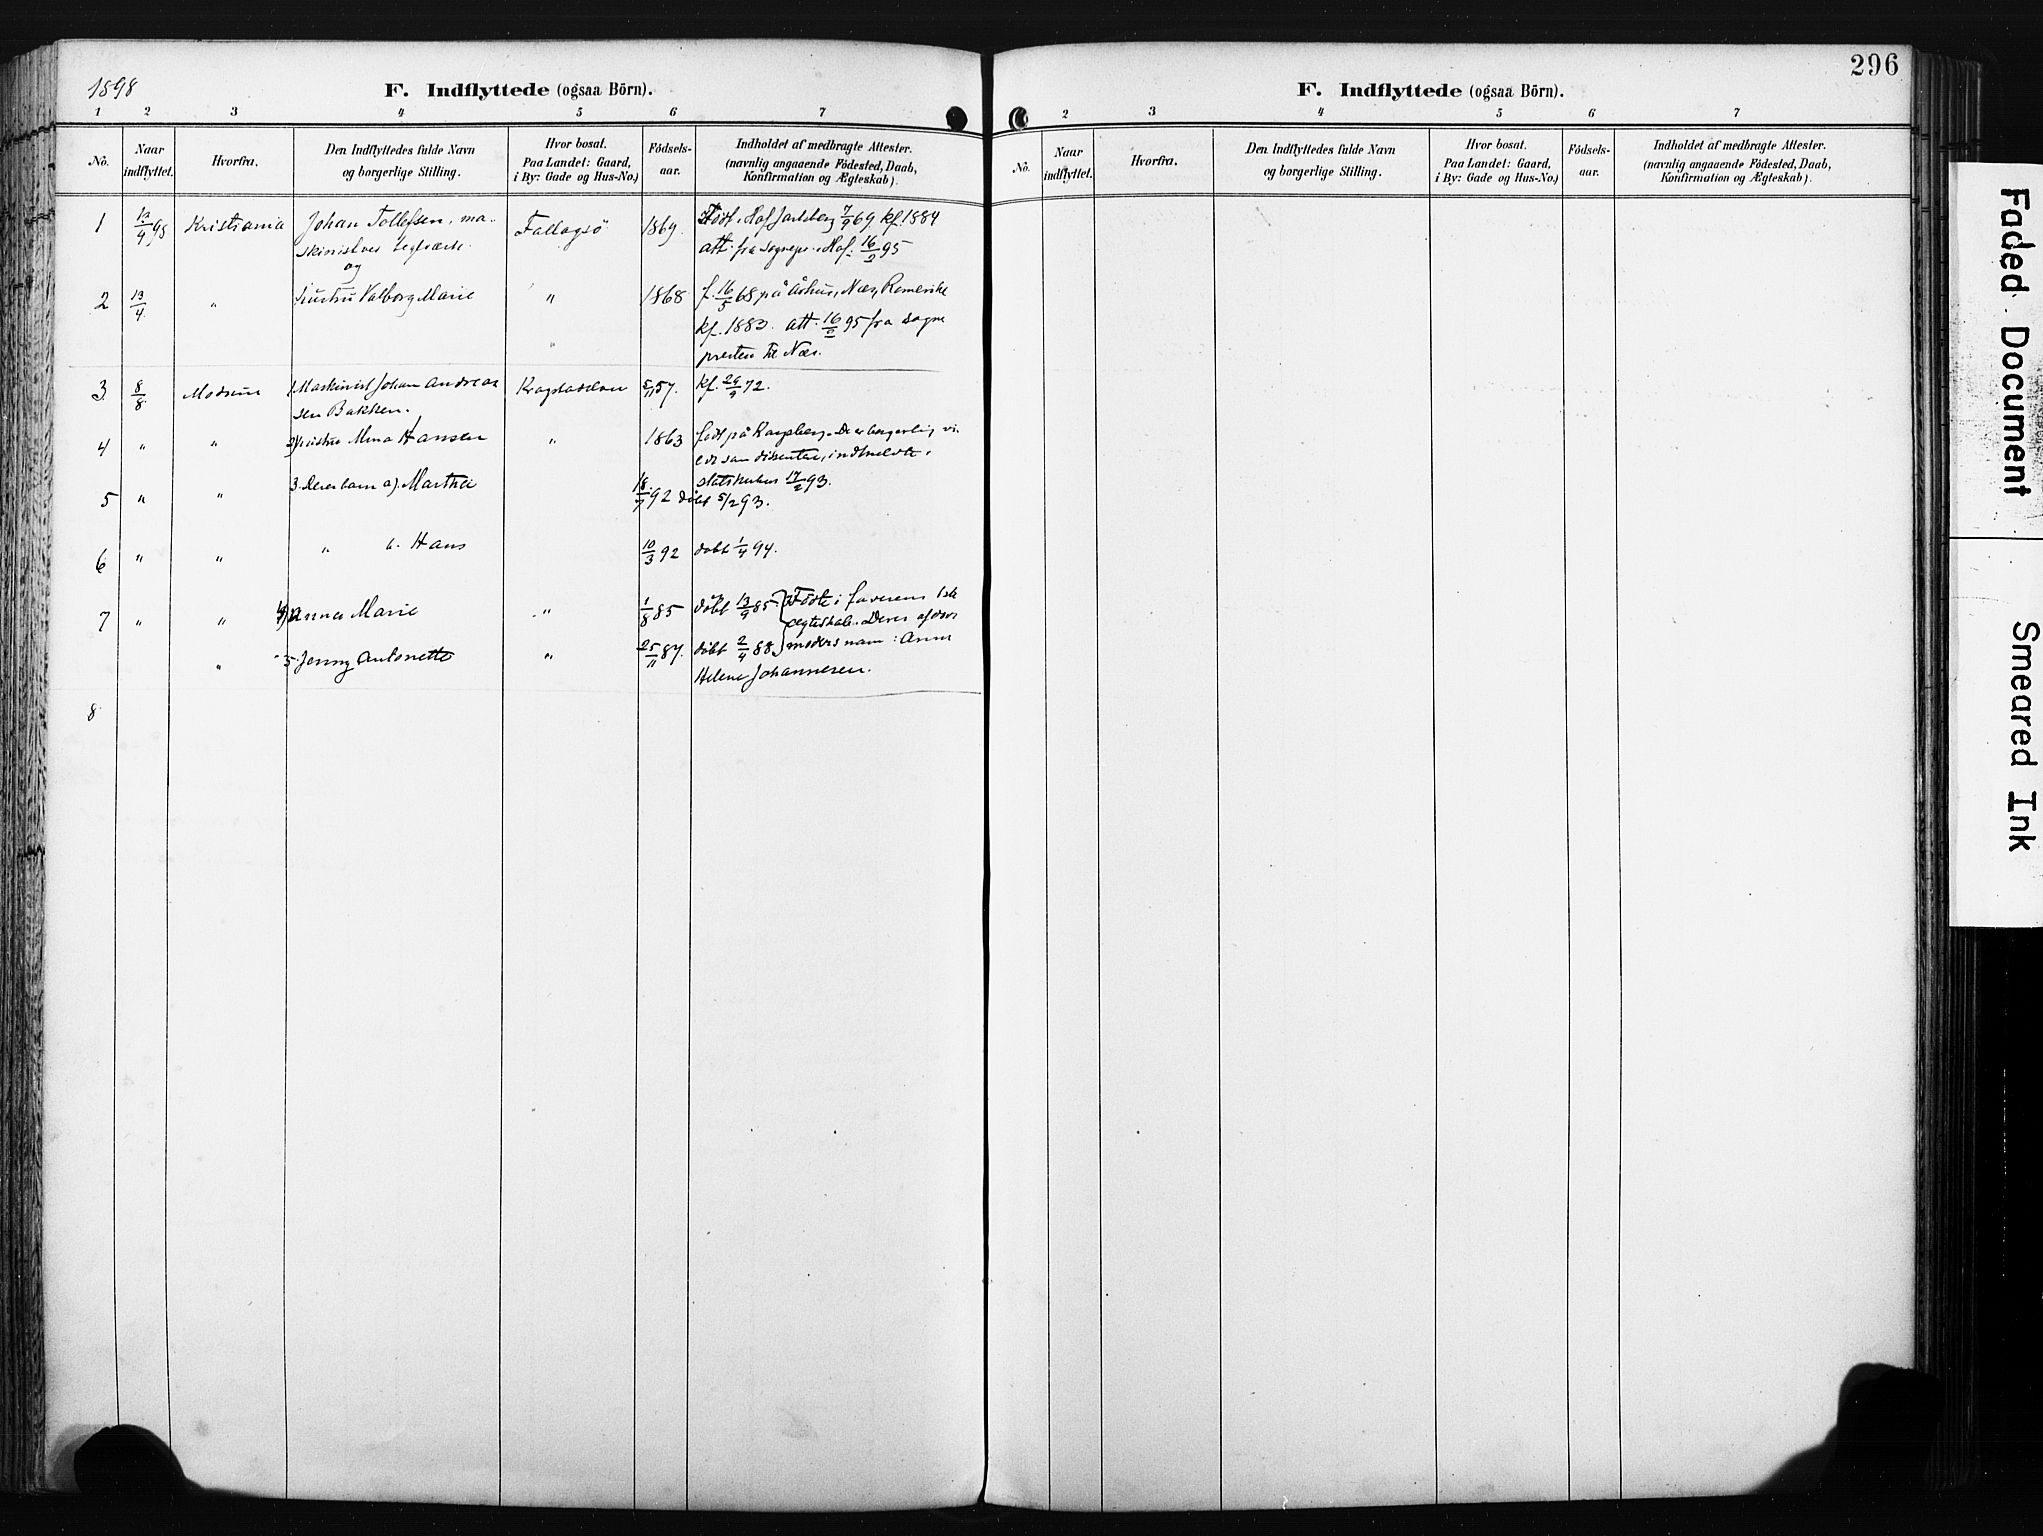 1898
F. Indflyttede (ogsaa Börn).
1 2 3 4 5 6 7
No. Naar indflyttet. Hvorfra. Den Indflyttedes fulde Navn og borgerlige Stilling. Hvor bosat. Paa Landet: Gaard, i By: Gade og Hus-No.) Födsels-aar. Indholdet af medbragte Attester. (navnlig angaaende Födested, Daab, Konfirmation og Ægteskab).
1 Kristiania Johan Tollefsen, ma- 1869 Født i Hof Jarlsberg 7/9 69 kf. 1884
skinist ved teglværk att. fra sognepr. i Hof 16/2 95
og
2 13/4 " hustru Valborg Marie " 1868 f. 16/5 68 på Næs, Romerike
" kf. 1883. att. 16/2 95 fra sogne
presten til Næs.
3 8/8 Modum 1 Maskinist Johan Andreas 5/11 57. kf. 29/9 72.
sen Bakken.
4 " " 2) hustru Mina Hansen " 1863 født på Kongsberg. De er borgerlig vi-
et som dissentere, indmeldte i
5 " " 3. Deres barn a) Martha 18/7 92 statskirken 17/2 93.
døbt 5/2 93.
6 " " " b. Hans 10/3 92 døbt 1/4 94.
7 " " 4) Anna Marie " 1/8 85 døbt 13/9 85 Fødte i faderens 1ste
ægteskab. Deres afdøde
" 5. Jenny Antonette " 25/11 87. døbt 2/4 88 moders navn: Anne
Helene Johannesen.
8
296
F. Indflyttede (ogsaa Börn).
2 3 4 5 6 7
No. Naar indflyttet. Hvorfra. Den Indflyttedes fulde Navn og borgerlige Stilling. Hvor bosat. Paa Landet: Gaard, i By: Gade og Hus-No.) Födsels-aar. Indholdet af medbragte Attester. (navnlig angaaende Födested, Daab, Konfirmation og Ægteskab).
Faded Document
Smeared Ink